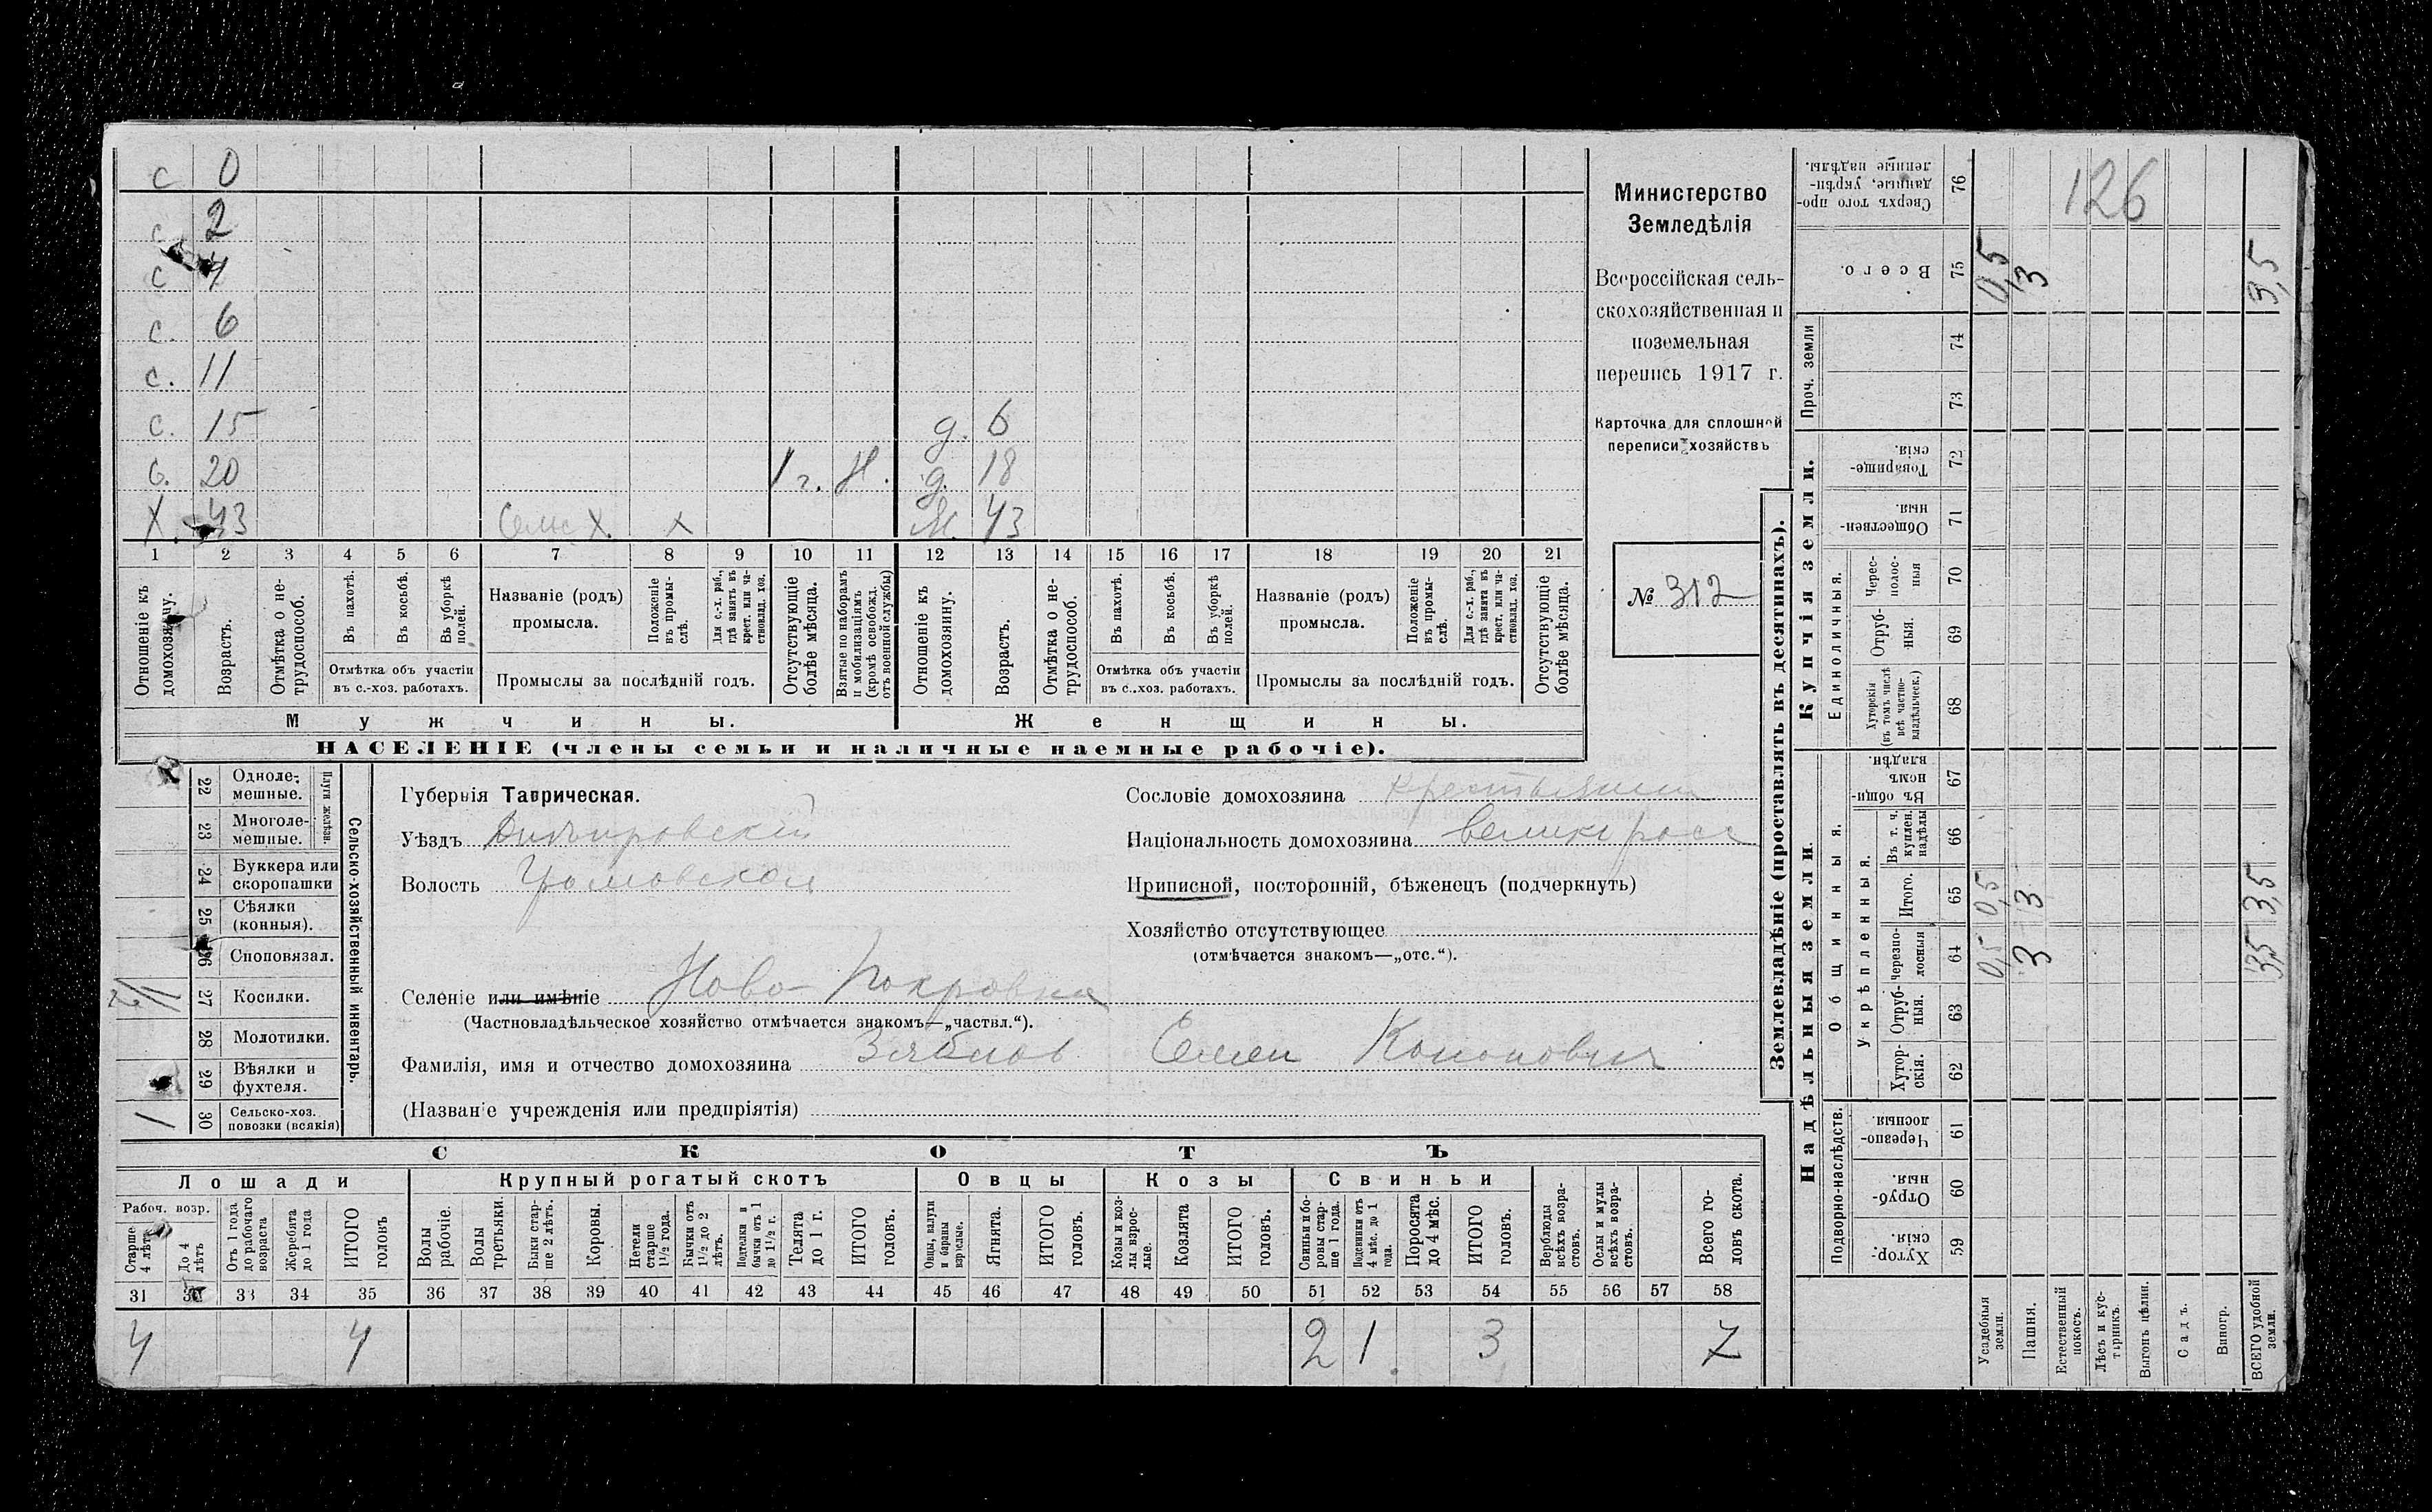 с 0
с 2
с 4
с. 6
с. 11
с. 15 д. 6
с. 20 1 г. Н. д. 18
Х. 43 Сельс Х. х М. 43
1 2 3 4 5 6 7 8 9 10 11 12 13 14 15 16 17 18 19 20 21
Отношеніе къ домохозяину.
Возрастъ.
Отмѣтка о не-
трудоспособ.
Въ пахотѣ.
Въ косьбѣ.
Въ уборкѣ
полей.
Отмѣтка объ участіи
въ с.-хоз. работахъ.
Названіе (родъ)
промысла.
Положеніе
въ промы-
слѣ.
Для с.-х. раб.,
гдѣ занятъ въ
крест. или ча-
стновлад. хоз.
Промыслы за послѣдній годъ.
Отсутствующіе
болѣе мѣсяца.
Взятые по наборамъ
и мобилизаціямъ
(кромѣ освобожд.
отъ военной службы)
Отношеніе къ
домохозяину.
Возрастъ.
Отмѣтка о не-
трудоспособ.
Въ пахотѣ.
Въ косьбѣ.
Въ уборкѣ
полей.
Отмѣтка объ участіи
въ с..хоз. работахъ.
Названіе (родъ)
промысла.
Положеніе
въ промы-
слѣ.
Для с.-х. раб.,
гдѣ занята въ
крест. или ча-
стновлад. хоз.
Промыслы за послѣдній годъ.
Отсутствующіе
болѣе мѣсяца.
Мужчины. Женщины.
НАСЕЛЕНІЕ (члены семьи и наличные наемные рабочіе).
Министерство
Земледѣлія
Всероссійская сель-
скохозяйственная и
поземельная
перепись 1917 г.
Карточка для сплошной
переписи хозяйствъ
№ 312
22 Одноле-
мешные.
23 Многоле-
мешные.
Плуги желѣзн.
24 Буккера или
скоропашки
25 Сѣялки
(конныя).
26 Сноповязал.
27 Косилки.
28 Молотилки.
29 Вѣялки и
фухтеля.
1 30 Сельско-хоз.
повозки (всякія)
Сельско-хозяйственный инвентарь.
Губернія Таврическая.
Уѣздъ Днѣпровскій
Волость Громовской
Селеніе или имѣніе Ново Покровка
(Частновладѣльческое хозяйство отмѣчается знакомъ—„частвл.“).
Фамилія, имя и отчество домохозяина Зяблов Семен Кононович
(Названіе учрежденія или предпріятія)
Сословіе домохозяина крестьянин
Національность домохозяина великоросс
Приписной, посторонній, бѣженецъ (подчеркнуть)
Хозяйство отсутствующее
(отмѣчается знакомъ—„отс.“).
СКОТЪ
Лошади Крупный рогатый скотъ Овцы Козы Свиньи
Рабоч. возр.
Старше
4 лѣтъ
До 4
лѣтъ
Отъ 1 года
до рабочаго
возраста
Жеребята
до 1 года
ИТОГО
головъ
Волы
рабочіе.
Волы
третьяки.
Быки стар-
ше 2 лѣтъ.
Коровы.
Нетели
старше
1½ года.
Бычки отъ
1½ до 2
лѣтъ.
Подтелки и
бычки отъ 1
до 1½ г.
Телята
до 1 г.
ИТОГО
головъ.
Овцы, валухи
и бараны
взрослые.
Ягнята.
ИТОГО
головъ.
Козы и коз-
лы взрос-
лые.
Козлята
ИТОГО
головъ.
Свиньи и бо-
ровы стар-
ше 1 года.
Подсвинки отъ
4 мѣс. до 1
года.
Поросята
до 4 мѣс.
ИТОГО
головъ.
Верблюды
всѣхъ возра-
стовъ.
Ослы и мулы
всѣхъ возра-
стовъ.
Всего го-
ловъ скота.
31 32 33 34 35 36 37 38 39 40 41 42 43 44 45 46 47 48 49 50 51 52 53 54 55 56 57 58
4 4 2 1 3 7
Землевладѣніе (проставлять въ десятинахъ).
Купчія земли.
Надѣльныя земли.
Сверхъ того про-
данные, укрѣп-
ленные надѣлы.
76
126
Всего.
75 0,5 3 3,5
Проч. земли
74
73
Товарище-
скія.
72
Обществен-
ныя.
71
Единоличныя.
Черес-
полос-
ныя
70
Отруб-
ныя.
69
Хуторскія
(въ томъ числѣ
всѣ частно-
владѣльческ.)
68
Общинныя.
Въ общин-
номъ
владѣн.
67
Укрѣпленныя.
Въ т. ч.
куплен.
надѣлы
66
Итого.
65 0,5 3 3,5
Черезпо-
лосныя
64 0,5 3 3,5
Отруб-
ныя.
63
Хутор-
скія.
62
Подворно-наслѣдств.
Черезпо-
лосныя
61
Отруб-
ныя.
60
Хутор-
скія.
59
Усадебныя
земли.
Пашня.
Естественный
покосъ.
Лѣсъ и кус-
тарникъ.
Выгонъ цѣлин.
Садъ.
Виногр.
ВСЕГО удобной
земли.